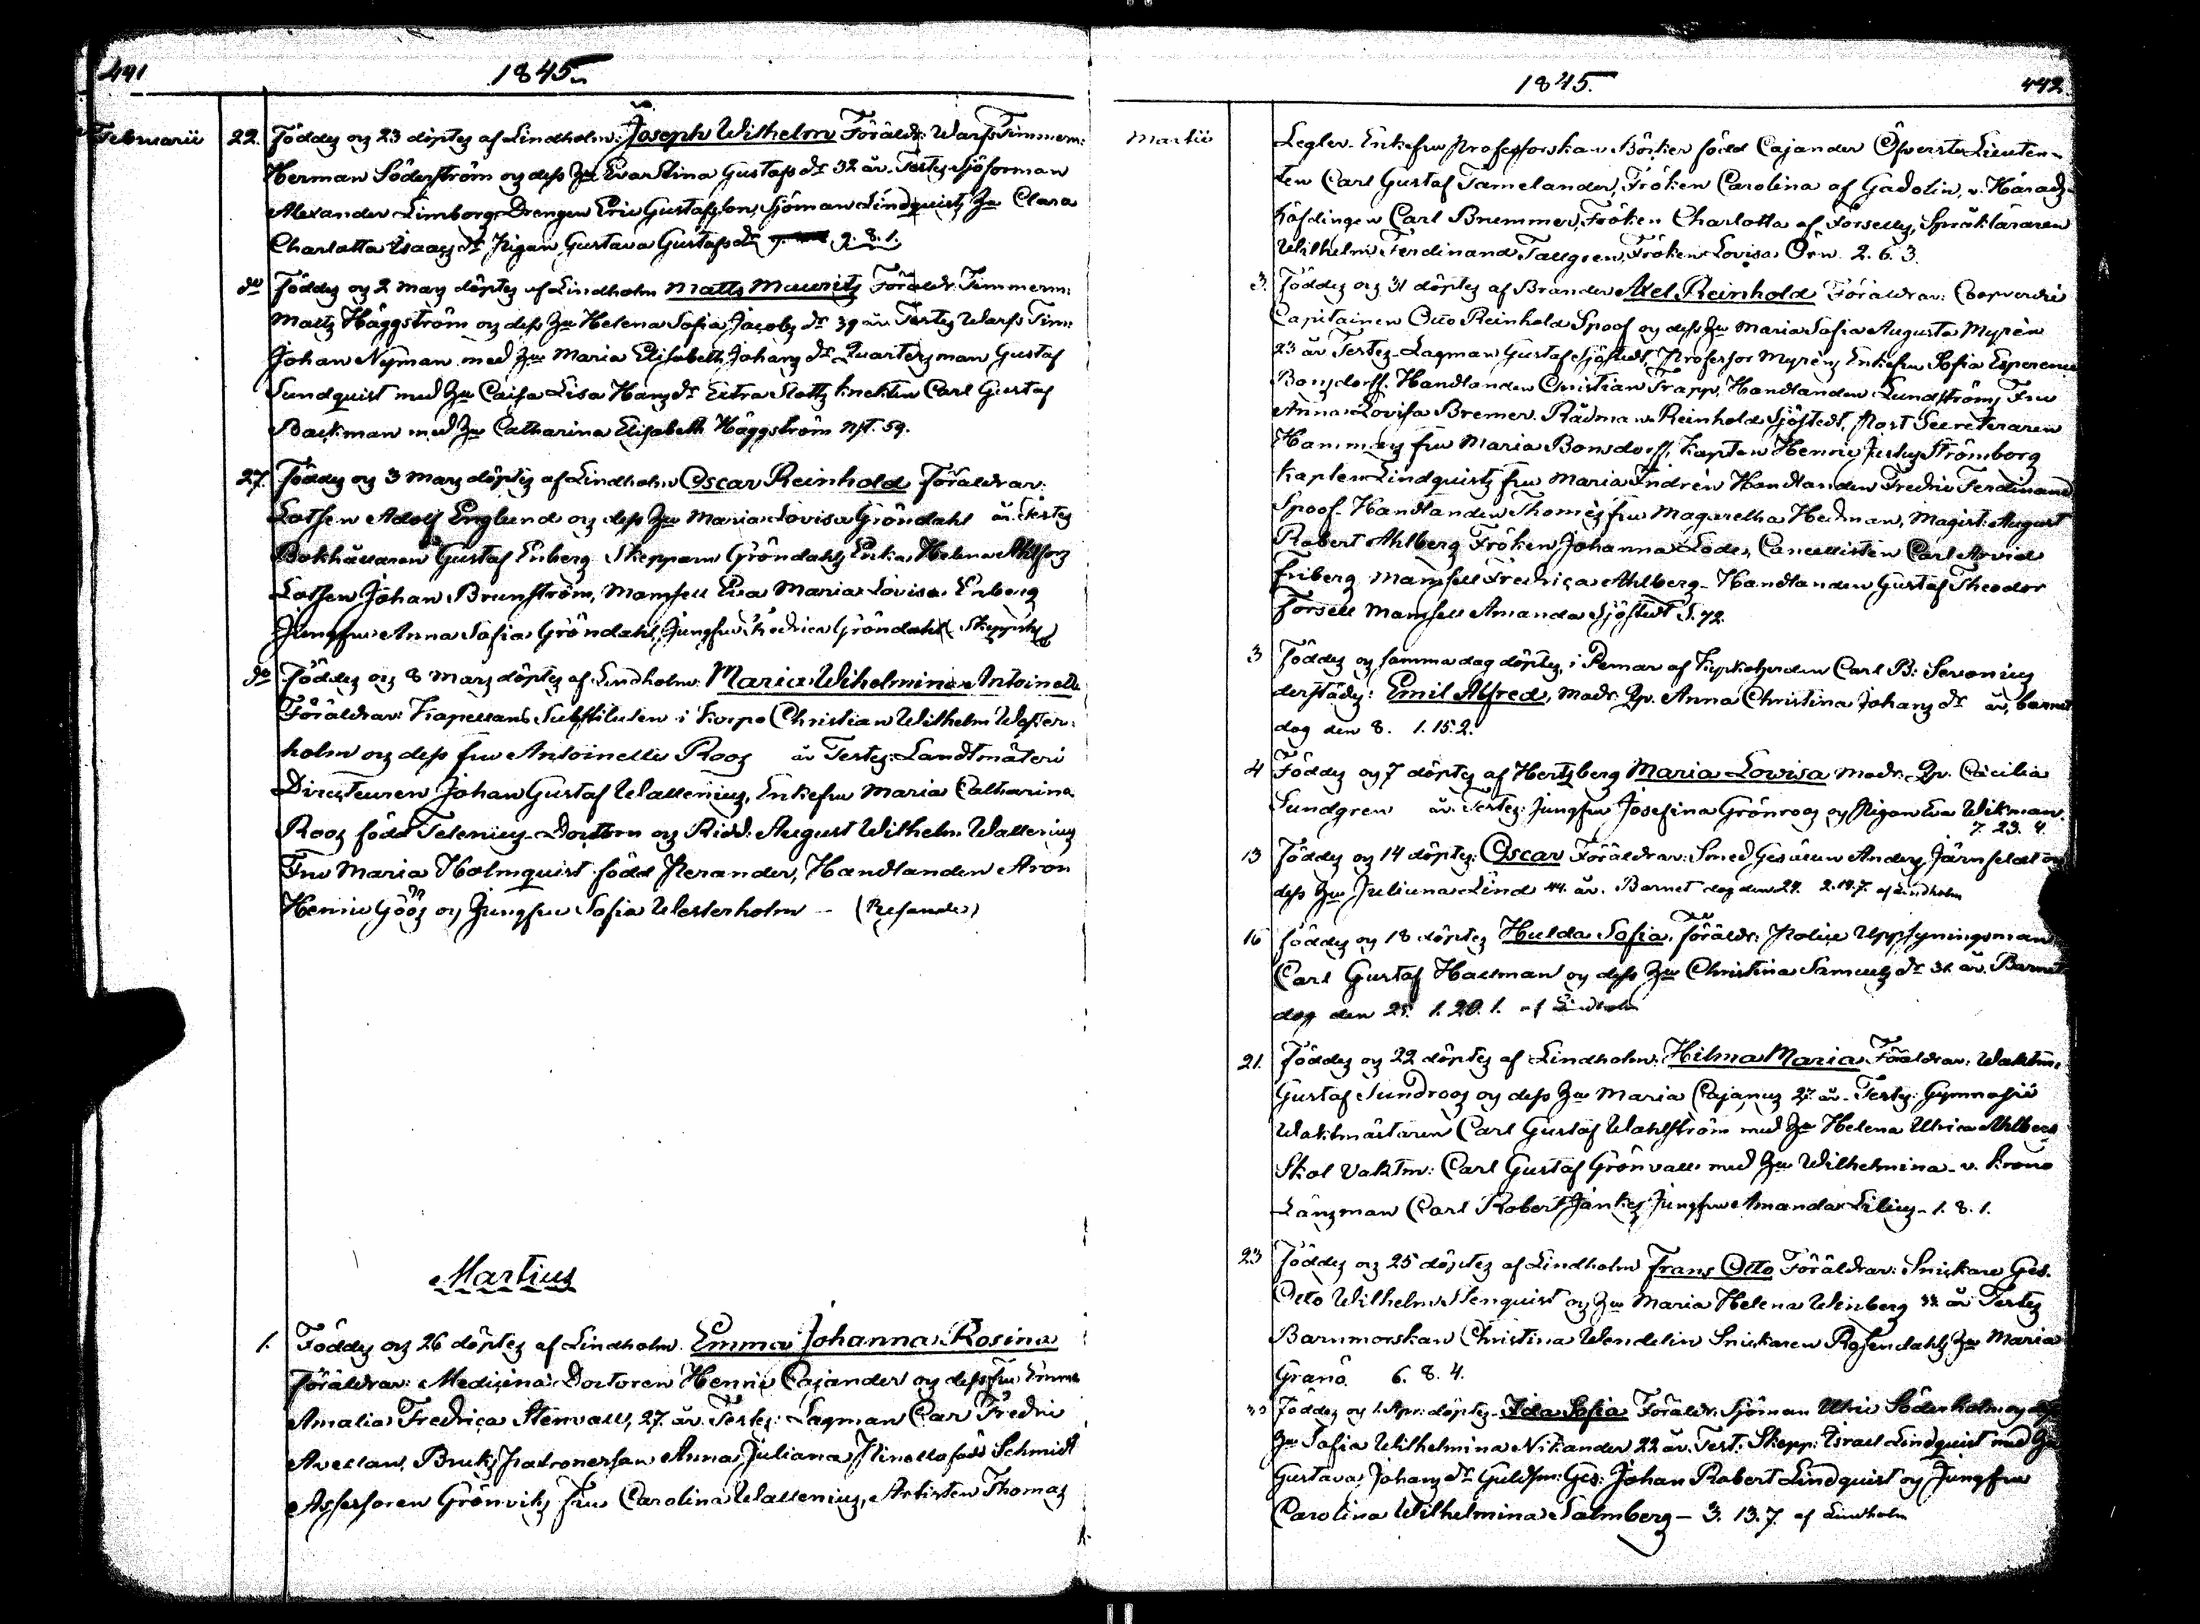 441
1845
Februarii 22. Föddes og 23 döptes af Lindholm: Joseph Wilhelm Föräldr: WarfsTimmerm:
Herman Söderström og dess Hu Eva Stina Gustafs dr 32 år. Testes Sjöforman
Alexander Limborg, Drengen Eric Gustafsson, Sjöman Lindquists Hu Clara
Charlotta Isaacs dr Pigan Gustava Gustafs dr 9. 8. 1.
do Föddes og 2 Mars döptes af Lindholm Matts Mauritz Föräldr: Timmerm:
Matts Häggström og dess Hu Helena Sofia Jacobs dr 39 år. Testes Warfs Tim:
Johan Nyman med Hu Maria Elisabeth Johans dr Quartersman Gustaf
Sundquist med Hu Caisa Lisa Hans dr Extra Slotts knekten Carl Gustaf
Backman med Hu Catharina Elisabeth Häggström Nst. 59.
27. Föddes og 3 Mars döptes af Lindholm Oscar Reinhold Föräldrar:
Lotsen Adolf Englund og dess Hu Maria Lovisa Gröndahl år. Testes
Bokhållaren Gustaf Enberg Skepparen Gröndahls Enka Helena Ahlfors
Lotsen Johan Brunström, Mamsell Eva Maria Lovisa Enberg
Jungfru Anna Sofia Gröndahl, Jungfru Fredrica Gröndahl
do Föddes og 8 Mars döptes af Lindholm: Maria Wilhelmina Antoinette
Föräldrar: Kapellans Substituten i Korpo Christian Wilhelm Wester-
holm og dess fru Antoinette Roos år Testes: Landtmäteri
Directeuren Johan Gustaf Wallenius, Enkefru Maria Catharina
Roos född Telenius Doctorn og Ridd: August Wilhelm Wallenius
Fru Maria Holmquist född Nerander, Handlanden Aron
Henric Göös og Jungfru Sofia Westerholm - (Resande)
Martius
1. Föddes og 26 döptes af Lindholm. Emma Johanna Rosina
Föräldrar: Medicina Doctoren Henric Cajander og dess fru Emma
Amalia Fredrica Stenvall, 27. år. Testes: Lagman Carl Fredric
Avellan, Bruks Patronersan Anna Juliana född Schmidt
Assessoren Grönviks fru Carolina Wallenius, Artisten Thomas
1845.
442
Martii Legler. Enkefru Professorskan Böcker född Cajander Öfverste Lieuten-
ten Carl Gustaf Tamelander, Fröken Carolina af Gadolin, v. Härads-
höfdingen Carl Brummer, Fröken Charlotta af Forselles, Språkläraren
Wilhelm Ferdinand Tallgren, Fröken Lovisa Örn. 2. 6. 3.
3. Föddes og 31 döptes af Brander Axel Reinhold Föräldrar: Coopverdie
Capitainen Otto Reinhold Spoof og dess Hu Maria Sofia Augusta Myrén
23 år Testes Lagman Gustaf Sjöstedt, Professor Myréns Enkefru Sofia Esperence
Bonsdorff. Handlanden Christian Trapp, Handlanden Lundströms Fru
Anna Lovisa Bremer. Rådman Reinhold Sjöstedt, Post Secreteraren
Hammars fru Maria Bonsdorff, Kapten Henric Justus Strömborg
Kapten Lindquists fru Maria Indrén Handlanden Fredric Ferdinand
Spoof. Handlanden Thomés fru Magaretha Hedman, Magist: August
Robert Ahlberg Fröken Johanna Lode, Cancellisten Carl Arvid
Friberg Mamsell Fredrica Ahlberg - Handlanden Gustaf Theodor
Forsell Mamsell Amanda Sjöstedt S. 72.
3 Föddes og samma dag döptes i Pemar af Kyrkoherden Carl B: Serenius
derstädes: Emil Alfred, Modr: Qp. Anna Christina Johans dr år, barnet
dog den 8. 1. 15. 2.
4 Föddes og 7 döptes af Hertzberg Maria Lovisa Modr: Qp. Cacilia
Sundgren år. Testes: Jungfru Josefina Grönroos og Pigan Eva Wikman.
7. 23. 4.
13 Föddes og 14 döptes: Oscar Föräldrar: Smed Gesällen Anders Järnfeldt og
dess Hu Juliana Lind 44. år. Barnet dog den 24. 2. 14. 7. af Lindholm
16 föddes og 18 döptes Hulda Sofia. föräldr: Police Uppsyningsman
Carl Gustaf Hallman og dess Hu Christina Samuels dr 31 år. Barnet
dog den 25. 1. 20. 1. af Lindholm
21. Föddes og 22 döptes af Lindholm: Hilma Maria. Föräldrar: Waktm:
Gustaf Sundroos og dess Hu Maria Cajanus 27. år. Testes: Gymnasii
Waktmästaren Carl Gustaf Wahlström med Hu Helena Ulrica Ahlberg
Skol Vaktm: Carl Gustaf Grönvall med Hu Wilhelmina. v. Krono
Länsman Carl Robert Jankes Jungfru Amanda Lilius. 1. 8. 1.
23 Föddes og 25 döptes af Lindholm Frans Otto Föräldrar: Snickare Ges.
Otto Wilhelm Stenquist og Hu Maria Helena Winberg 33 år Testes
Barnmorskan Christina Wendelin Snickaren Rosendahls Hu Maria
Granö. 6. 8. 4.
30 Föddes og 1. Apr: döptes Ida Sofia Föräldr: Sjöman Ulric Söderholm og dess
Hu Sofia Wilhelmina Nikander 22 år. Test: Skepp: Israel Lindquist med Hu
Gustava Johans dr Guldsm: Ges: Johan Robert Lindquist og Jungfru
Carolina Wilhelmina Salmberg - 3. 13. 7. af Lindholm